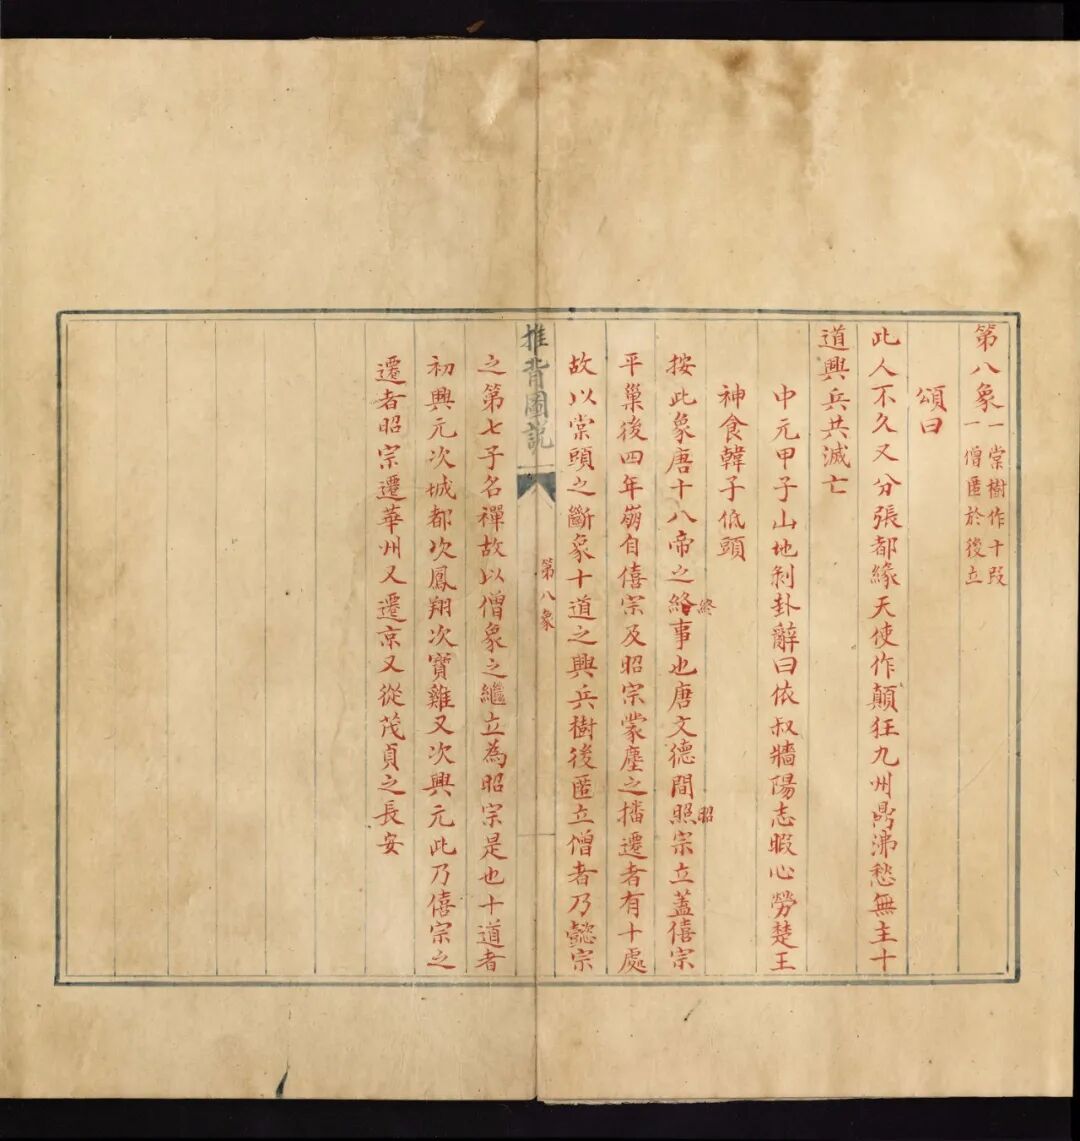 第八象
一棠樹作十段
一僧匿於後立
頌曰
此人不久又分張都緣天使作顛狂九州鼎沸愁無主十
道興兵共滅亡
中元甲子山地剝卦辭曰依叔牆陽志暇心勞楚王
神食韓子低頭
按此象唐十八帝之終事也唐文德間照宗立蓋僖宗
終
昭
平巢後四年崩自僖宗及昭宗蒙塵之播遷者有十處
故以棠頭之斷象十道之興兵樹後匿立僧者乃懿宗
推背圖說
第八象
之第七子名禪故以僧象之繼立為昭宗是也十道者
初興元次城都次鳳翔次寶雞又次興元此乃僖宗之
遷者昭宗遷華州又遷京又從茂貞之長安